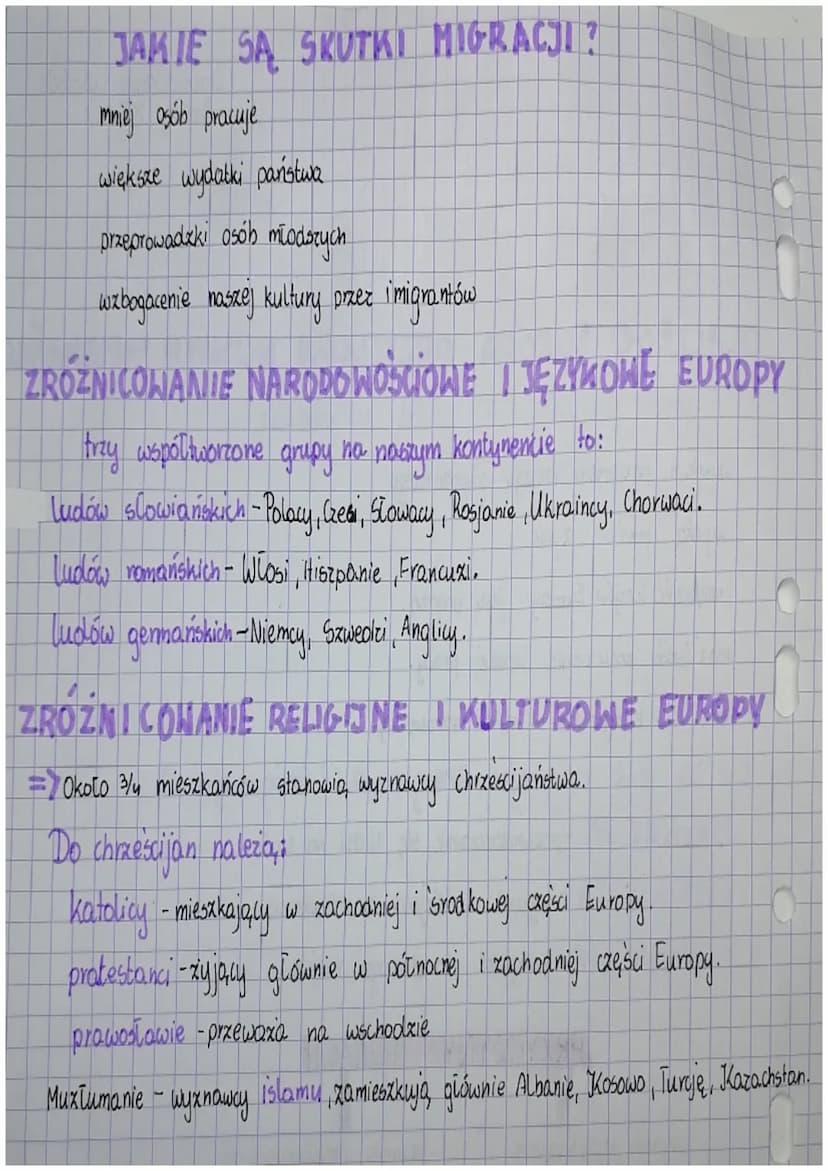 JAKIE SĄ SKUTKI MIGRACJI?
mniej osób pracuje
większe wydatki państwa
przeprowadzki osób młodszych
wzbogacenie naszej kultury przez imigrantów
ZRÓŻNICOWANIE NARODOWOŚCIOWE I JĘZYKOWE EUROPY
trzy współtworzone grupy na naszym kontynencie to:
ludów słowiańskich - Polacy, Czesi, Słowacy, Rosjanie, Ukraincy, Chorwaci.
ludów romańskich - Włosi, Hiszpanie, Francuzi.
ludów germańskich - Niemcy, Szwedzi, Anglicy.
ZRÓŻNICOWANIE RELIGIJNE I KULTUROWE EUROPY
=> Około 3/4 mieszkańców stanowią wyznawcy chrześcijaństwa.
Do chrześcijan należą:
katolicy - mieszkający w zachodniej i środkowej części Europy.
protestanci - żyjący głównie w północnej i zachodniej części Europy.
prawosławie - przeważa na wschodzie
Muzłumanie - wyznawcy islamu, zamieszkują głównie Albanie, Kosowo, Turcję, Kazachstan.